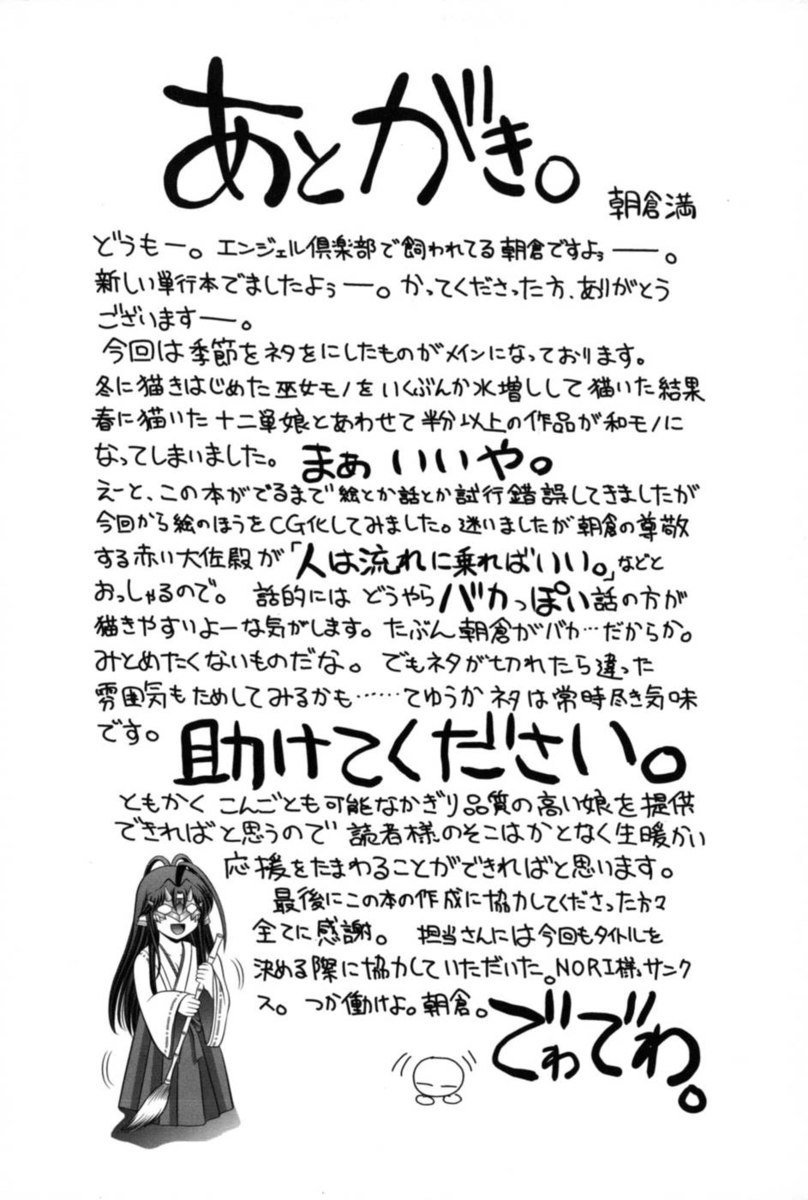 あとがき。
朝倉満
どうもー。エンジェル倶楽部で飼われてる朝倉ですよぉー。
新しい単行本でましたよぅー。かってくださった方、ありがとう
ございますー。
今回は季節をネタをにしたものがメインになっております。
冬に描きはじめた巫女モノをいくぶんか水増しして描いた結果
春に描いた十二単娘とあわせて半分以上の作品が和モノに
なってしまいました。まぁいいや。
えーと、この本がでるまで絵とか話とか試行錯誤してきましたが
今回から絵のほうをCG化してみました。迷いましたが朝倉の尊敬
する赤い大佐殿が「人は流れに乗ればいい。」などと
おっしゃるので。話的にはどうやらバカっぽい話の方が
描きやすいよーな気がします。たぶん朝倉がバカ…だからか。
みとめたくないものだな。でもネタが切れたら違った
雰囲気もためしてみるかも……てゆうかネタは常時尽き気味
です。助けてください。
ともかくこんごとも可能なかぎり品質の高い娘を提供
できればと思うので読者様のそこはかとなく生暖かい
応援をたまわることができればと思います。
最後にこの本の作成に協力してくださった方々
全てに感謝。担当さんには今回もタイトルを
決める際に協力していただいた。NORI様、サンク
ス。つか働けよ。朝倉。
でわでわ。